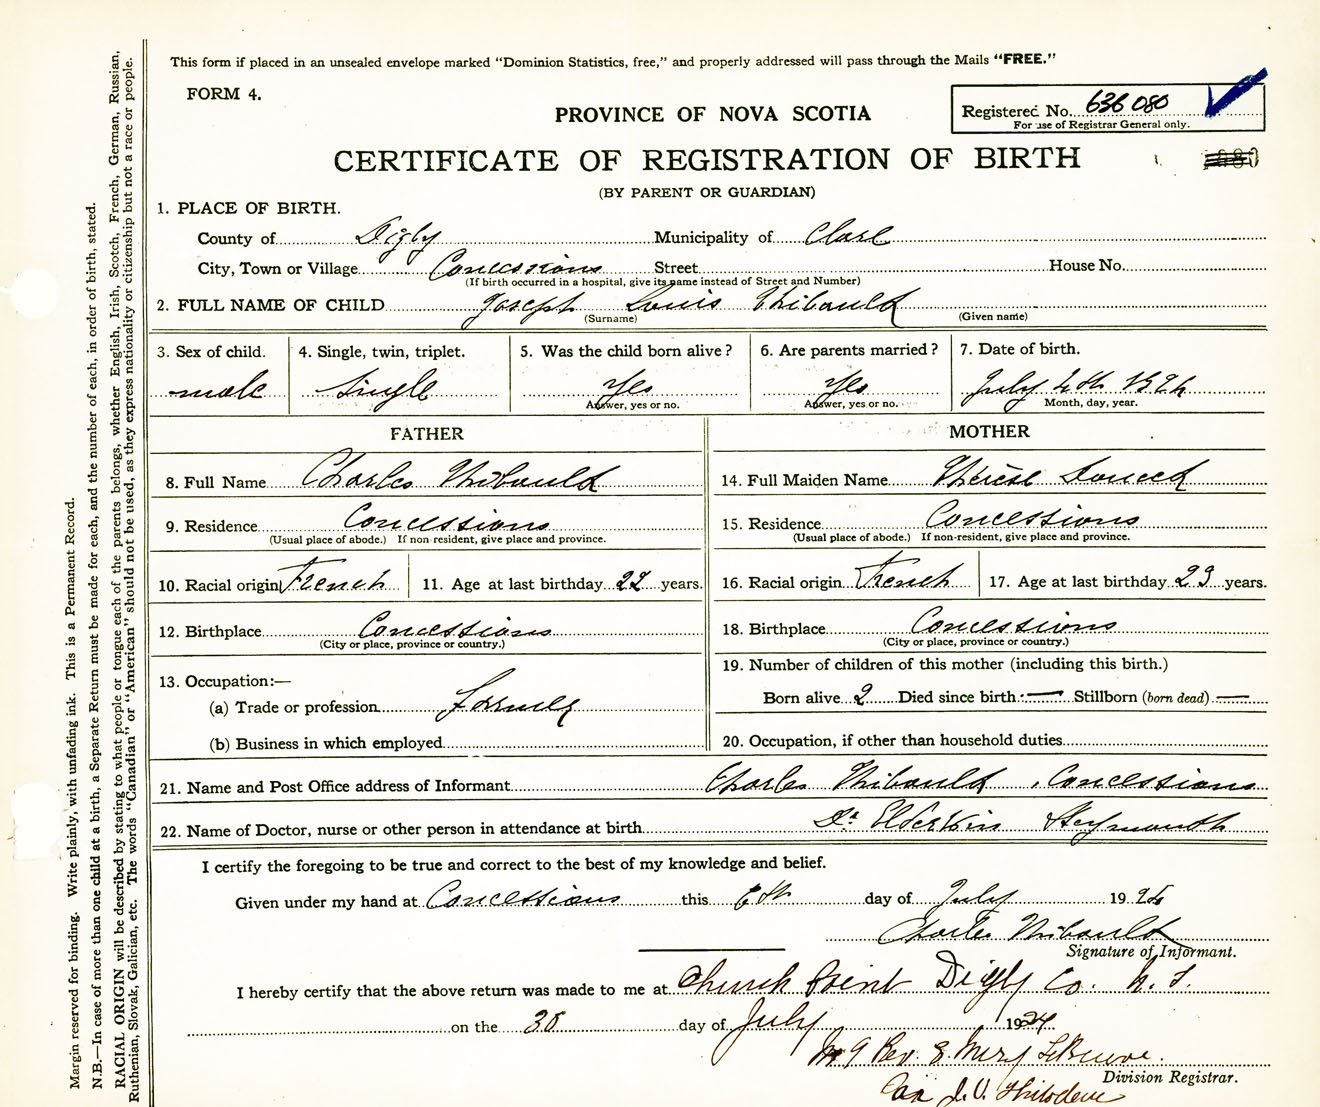 This form if placed in an unsealed envelope marked "Dominion Statistics, free," and properly addressed will pass through the Mails "FREE."
FORM 4.
PROVINCE OF NOVA SCOTIA
Registered No. 636 080
For use of Registrar General only.
CERTIFICATE OF REGISTRATION OF BIRTH
(BY PARENT OR GUARDIAN)
1. PLACE OF BIRTH.
County of Digby Municipality of Clare
City, Town or Village Concessions Street House No.
(If birth occurred in a hospital, give its name instead of Street and Number)
2. FULL NAME OF CHILD Joseph Louis Thibauld
(Surname) (Given name)
3. Sex of child. 4. Single, twin, triplet. 5. Was the child born alive? 6. Are parents married? 7. Date of birth.
male Single Yes Yes July 4th
Answer, yes or no. Answer, yes or no. Month, day, year.
FATHER MOTHER
8. Full Name Charles Thibauld 14. Full Maiden Name Thérèse
9. Residence Concessions 15. Residence Concessions
(Usual place of abode.) If non-resident, give place and province. (Usual place of abode.) If non-resident, give place and province.
10. Racial origin French 11. Age at last birthday 22 years. 16. Racial origin French 17. Age at last birthday 23 years.
12. Birthplace Concessions 18. Birthplace Concessions
(City or place, province or country.) (City or place, province or country.)
13. Occupation:— 19. Number of children of this mother (including this birth.)
(a) Trade or profession farmer Born alive 2 Died since birth: — Stillborn (born dead) —
(b) Business in which employed 20. Occupation, if other than household duties
21. Name and Post Office address of Informant Charles Thibauld, Concessions
22. Name of Doctor, nurse or other person in attendance at birth Dr Elderkin Weymouth
I certify the foregoing to be true and correct to the best of my knowledge and belief.
Given under my hand at Concessions this 6th day of July 1924
Charles Thibauld
Signature of Informant.
I hereby certify that the above return was made to me at Church Point Digby Co. N. S.
on the 30 day of July 1924
Rev. E.
Division Registrar.
J. V.
Margin reserved for binding. Write plainly, with unfading ink. This is a Permanent Record.
N.B.—In case of more than one child at a birth, a Separate Return must be made for each, and the number of each, in order of birth, stated.
RACIAL ORIGIN will be described by stating to what people or tongue each of the parents belongs, whether English, Irish, Scotch, French, German, Russian,
Ruthenian, Slovak, Galician, etc. The words "Canadian" or "American" should not be used, as they express nationality or citizenship but not a race or people.